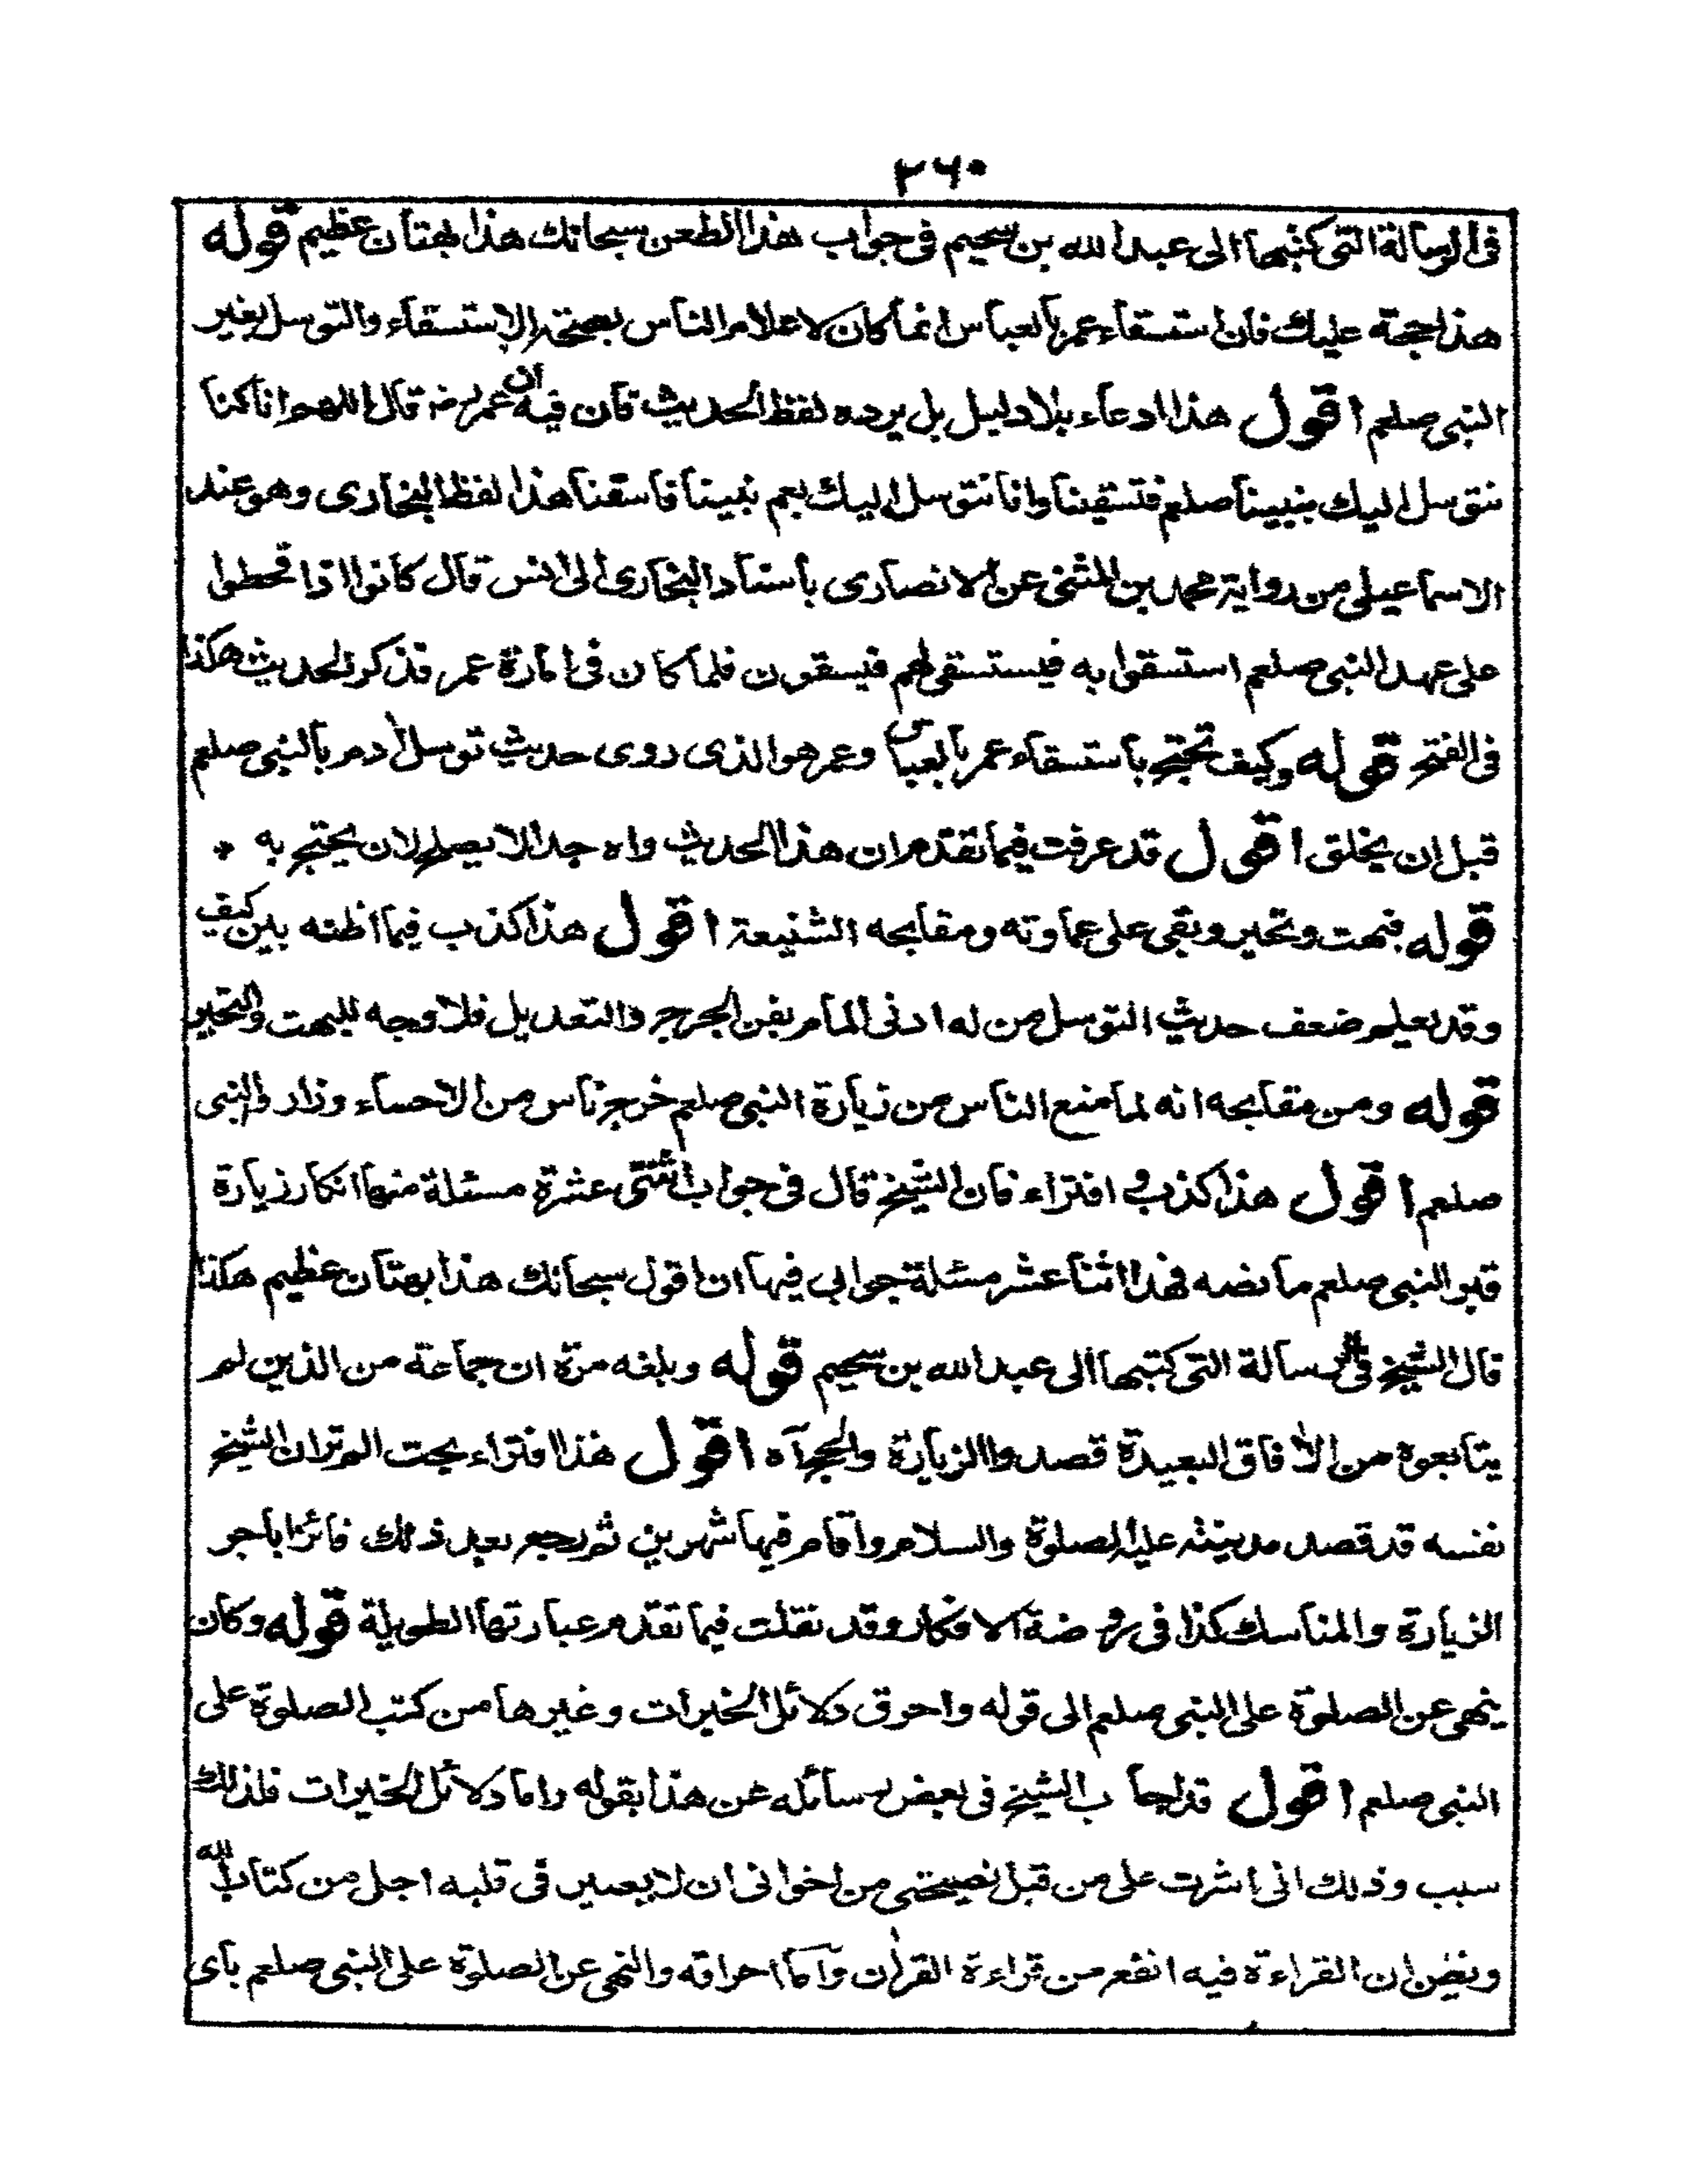 ٢٦٠
فى الرسالة التى كتبها الى عبد الله بن سحيم فى جواب هذا الطعن سبحانك هذا بهتان عظيم قوله
هذا حجة عليك فان استسقاء عمر بالعباس انما كان لاعلام الناس بصحة الاستسقاء والتوسل بغير
النبى صلعم اقول هذا ادعاء بلا دليل بل يرده لفظ الحديث فان فيه ان عمر رضـ قال اللهم انا كنا
نتوسل اليك بنبينا صلعم فتسقينا وانا نتوسل اليك بعم نبينا فاسقنا هذا لفظ البخارى وهو عند
الاسماعيلى من رواية محمد بن المثنى عن الانصارى باسناد البخارى الى انس قال كانوا اذا قحطوا
على عهد النبى صلعم استسقوا به فيستسقى لهم فيسقون فلما كان فى امارة عمر فذكر الحديث هكذا
فى الفتح قوله وكيف تحتج باستسقاء عمر بالعباس وعمر هو الذى روى حديث توسل ادم بالنبى صلعم
قبل ان يخلق اقول قد عرفت فيما تقدم ان هذا الحديث واه جدا لا يصلح لان يحتج به *
قوله فبهت وتحير وبقى على عماوته ومقابحه الشنيعة اقول هذا كذب فيما اظنه بين كيف
وقد يعلم ضعف حديث التوسل من له ادنى المام بفن الجرح والتعديل فلا وجه للبهت والتحير
قوله ومن مقابحه انه لما منع الناس من زيارة النبى صلعم خرج ناس من الاحساء وزاروا النبى
صلعم اقول هذا كذب و افتراء فان الشيخ قال فى جواب اثنتى عشرة مسئلة منها انكار زيارة
قبر النبى صلعم ما نصه فهذا اثنا عشر مسئلة جوابى فيها ان اقول سبحانك هذا بهتان عظيم هكذا
قال الشيخ فى الرسالة التى كتبها الى عبد الله بن سحيم قوله وبلغه مرة ان جماعة من الذين لم
يتابعوه من الافاق البعيدة قصدوا الزيارة والحج آه اقول هذا افتراء بحت الم تر ان الشيخ
نفسه قد قصد مدينته عليه الصلوة والسلام واقام فيها شهرين ثم رجع بعد ذلك فائزا باجر
الزيارة والمناسك كذا فى روضة الافكار وقد نقلت فيما تقدم عبارتها الطويلة قوله وكان
ينهى عن الصلوة على النبى صلعم الى قوله واحرق دلائل الخيرات وغيرها من كتب الصلوة على
النبى صلعم اقول قد اجاب الشيخ فى بعض رسائله عن هذا بقوله واما دلائل الخيرات فلذلك
سبب وذلك انى اشرت على من قبل نصيحتى من اخوانى ان لا يصير فى قلبه اجل من كتاب الله
ويظن ان القراءة فيه انفع من قراءة القرآن واما احراقه والنهى عن الصلوة على النبى صلعم باى